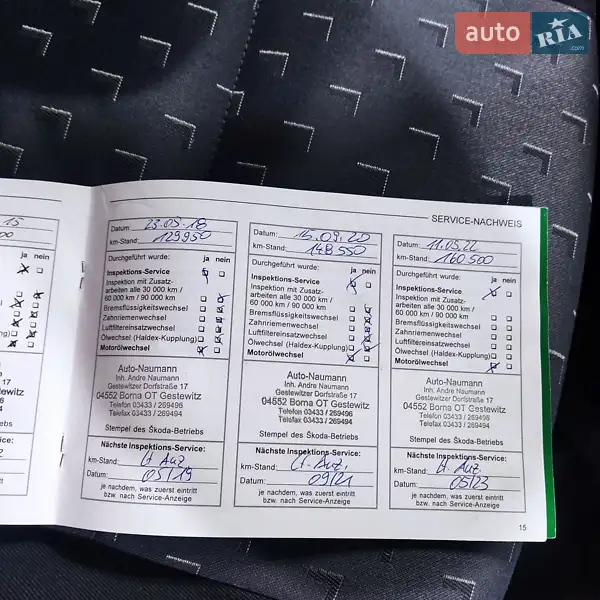 auto RIA .com
SERVICE-NACHWEIS
15
ja nein
Datum: 23.05.18
km-Stand: 129950
Durchgeführt wurde:
ja nein
Inspektions-Service
Inspektion mit Zusatz-
arbeiten alle 30 000 km /
60 000 km / 90 000 km
Bremsflüssigkeitswechsel
Zahnriemenwechsel
Luftfiltereinsatzwechsel
Ölwechsel (Haldex-Kupplung)
Motorölwechsel
Auto-Naumann
Inh. Andre Naumann
Gestewitzer Dorfstraße 17
04552 Borna OT Gestewitz
Telefon 03433 / 269496
Telefax 03433 / 269494
Stempel des Škoda-Betriebs
Nächste Inspektions-Service:
km-Stand: lt Anz.
Datum: 05/19
je nachdem, was zuerst eintritt
bzw. nach Service-Anzeige
Datum: 15.09.20
km-Stand: 148550
Durchgeführt wurde:
ja nein
Inspektions-Service
Inspektion mit Zusatz-
arbeiten alle 30 000 km /
60 000 km / 90 000 km
Bremsflüssigkeitswechsel
Zahnriemenwechsel
Luftfiltereinsatzwechsel
Ölwechsel (Haldex-Kupplung)
Motorölwechsel
Auto-Naumann
Inh. Andre Naumann
Gestewitzer Dorfstraße 17
04552 Borna OT Gestewitz
Telefon 03433 / 269496
Telefax 03433 / 269494
Stempel des Škoda-Betriebs
Nächste Inspektions-Service:
km-Stand: lt. Anz.
Datum: 09/21
je nachdem, was zuerst eintritt
bzw. nach Service-Anzeige
Datum: 11.05.22
km-Stand: 160500
Durchgeführt wurde:
ja nein
Inspektions-Service
Inspektion mit Zusatz-
arbeiten alle 30 000 km /
60 000 km / 90 000 km
Bremsflüssigkeitswechsel
Zahnriemenwechsel
Luftfiltereinsatzwechsel
Ölwechsel (Haldex-Kupplung)
Motorölwechsel
Auto-Naumann
Inh. Andre Naumann
Gestewitzer Dorfstraße 17
04552 Borna OT Gestewitz
Telefon 03433 / 269496
Telefax 03433 / 269494
Stempel des Škoda-Betriebs
Nächste Inspektions-Service:
km-Stand: lt. Anz.
Datum: 05/23
je nachdem, was zuerst eintritt
bzw. nach Service-Anzeige
15